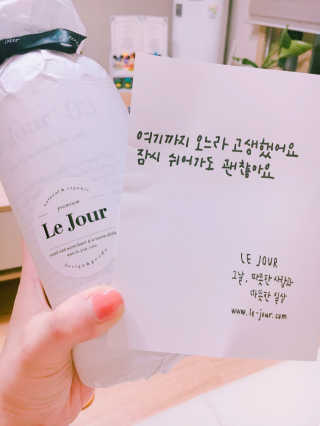 natural & organic
premium
Le Jour
design & gooday
여기까지 오느라 고생했어요
잠시 쉬어가도 괜찮아요
LE JOUR
그날, 따뜻한 사람과
따뜻한 일상
www.le-jour.com